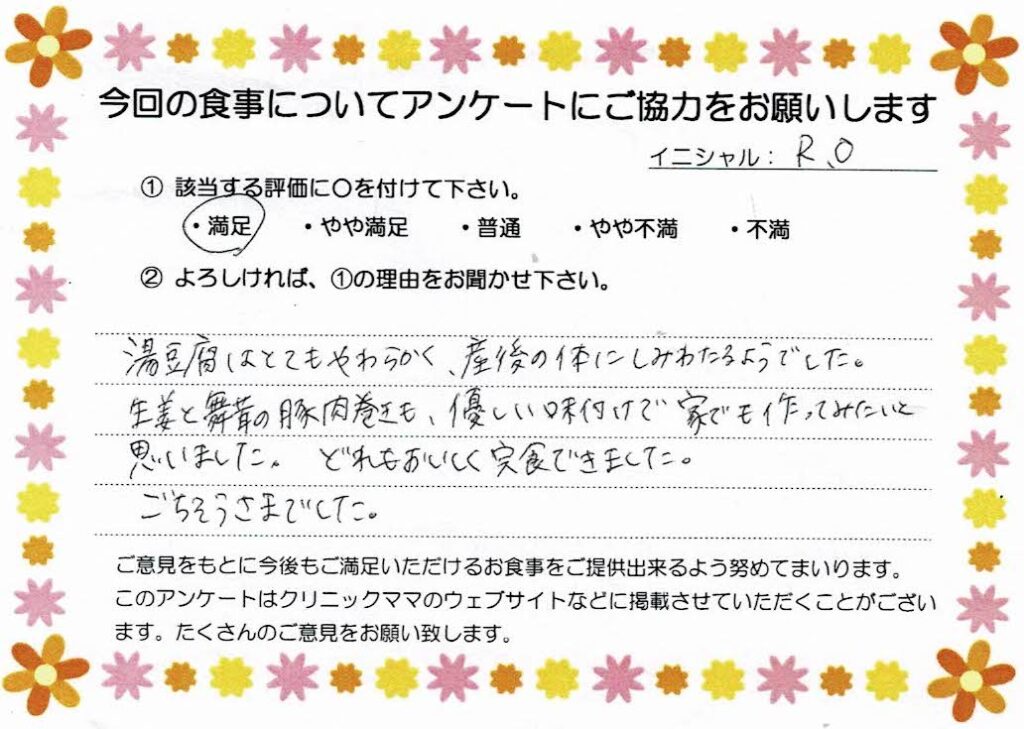 今回の食事についてアンケートにご協力をお願いします
イニシャル： R.O
① 該当する評価に〇を付けて下さい。
・満足 ・やや満足 ・普通 ・やや不満 ・不満
② よろしければ、①の理由をお聞かせ下さい。
湯豆腐はとてもやわらかく、産後の体にしみわたるようでした。
生姜と舞茸の豚肉巻きも、優しい味付けで家でも作ってみたいと
思いました。 どれもおいしく完食できました。
ごちそうさまでした。
ご意見をもとに今後もご満足いただけるお食事をご提供出来るよう努めてまいります。
このアンケートはクリニックママのウェブサイトなどに掲載させていただくことがござい
ます。たくさんのご意見をお願い致します。